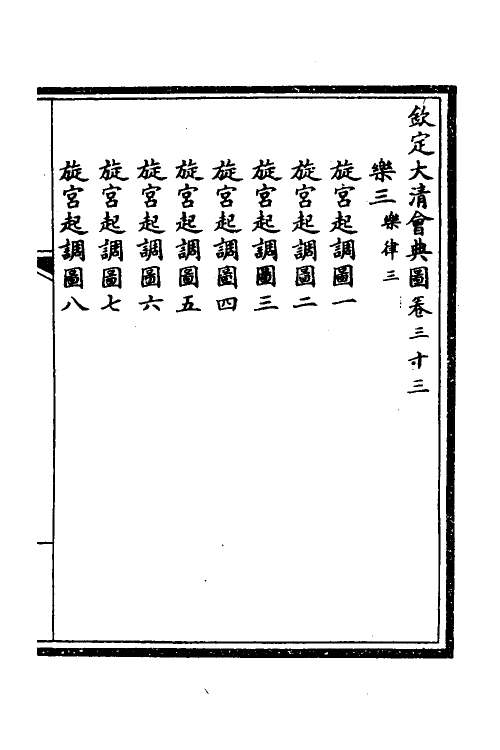 欽定大清會典圖卷三十三
樂三樂律三
旋宮起調圖一
旋宮起調圖二
旋宮起調圖三
旋宮起調圖四
旋宮起調圖五
旋宮起調圖六
旋宮起調圖七
旋宮起調圖八